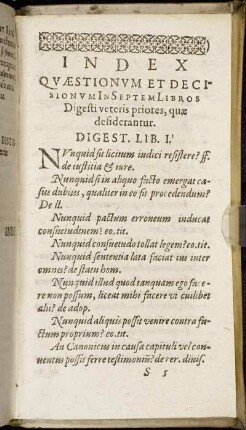 INDEX
QVÆSTIONVM ET DECI-
SIONVM IN SEPTEM LIBROS
Digesti veteris priores, quæ
desiderantur.
DIGEST. LIB. I.
NVnquid sit licitum iudici resistere? ff.
de iustitia & iure.
Nunquid si in aliquo facto emergat ca-
sus dubius, qualiter in eo sit procedendum?
De ll.
Nunquid pactum erroneum inducat
consuetudinem? eo. tit.
Nunquid consuetudo tollat legem? eo. tit.
Nunquid sententia lata faciat ius inter
omnes? de statu hom.
Nunquid illud quod tanquam ego face-
re non possum, liceat mihi facere vt cuilibet
alij? de adop.
Nunquid aliquis possit venire contra fa-
ctum proprium? eo. tit.
An Canonicus in causa capituli vel con-
uentus possit ferre testimoniũ? de rer. diuis.
S 1